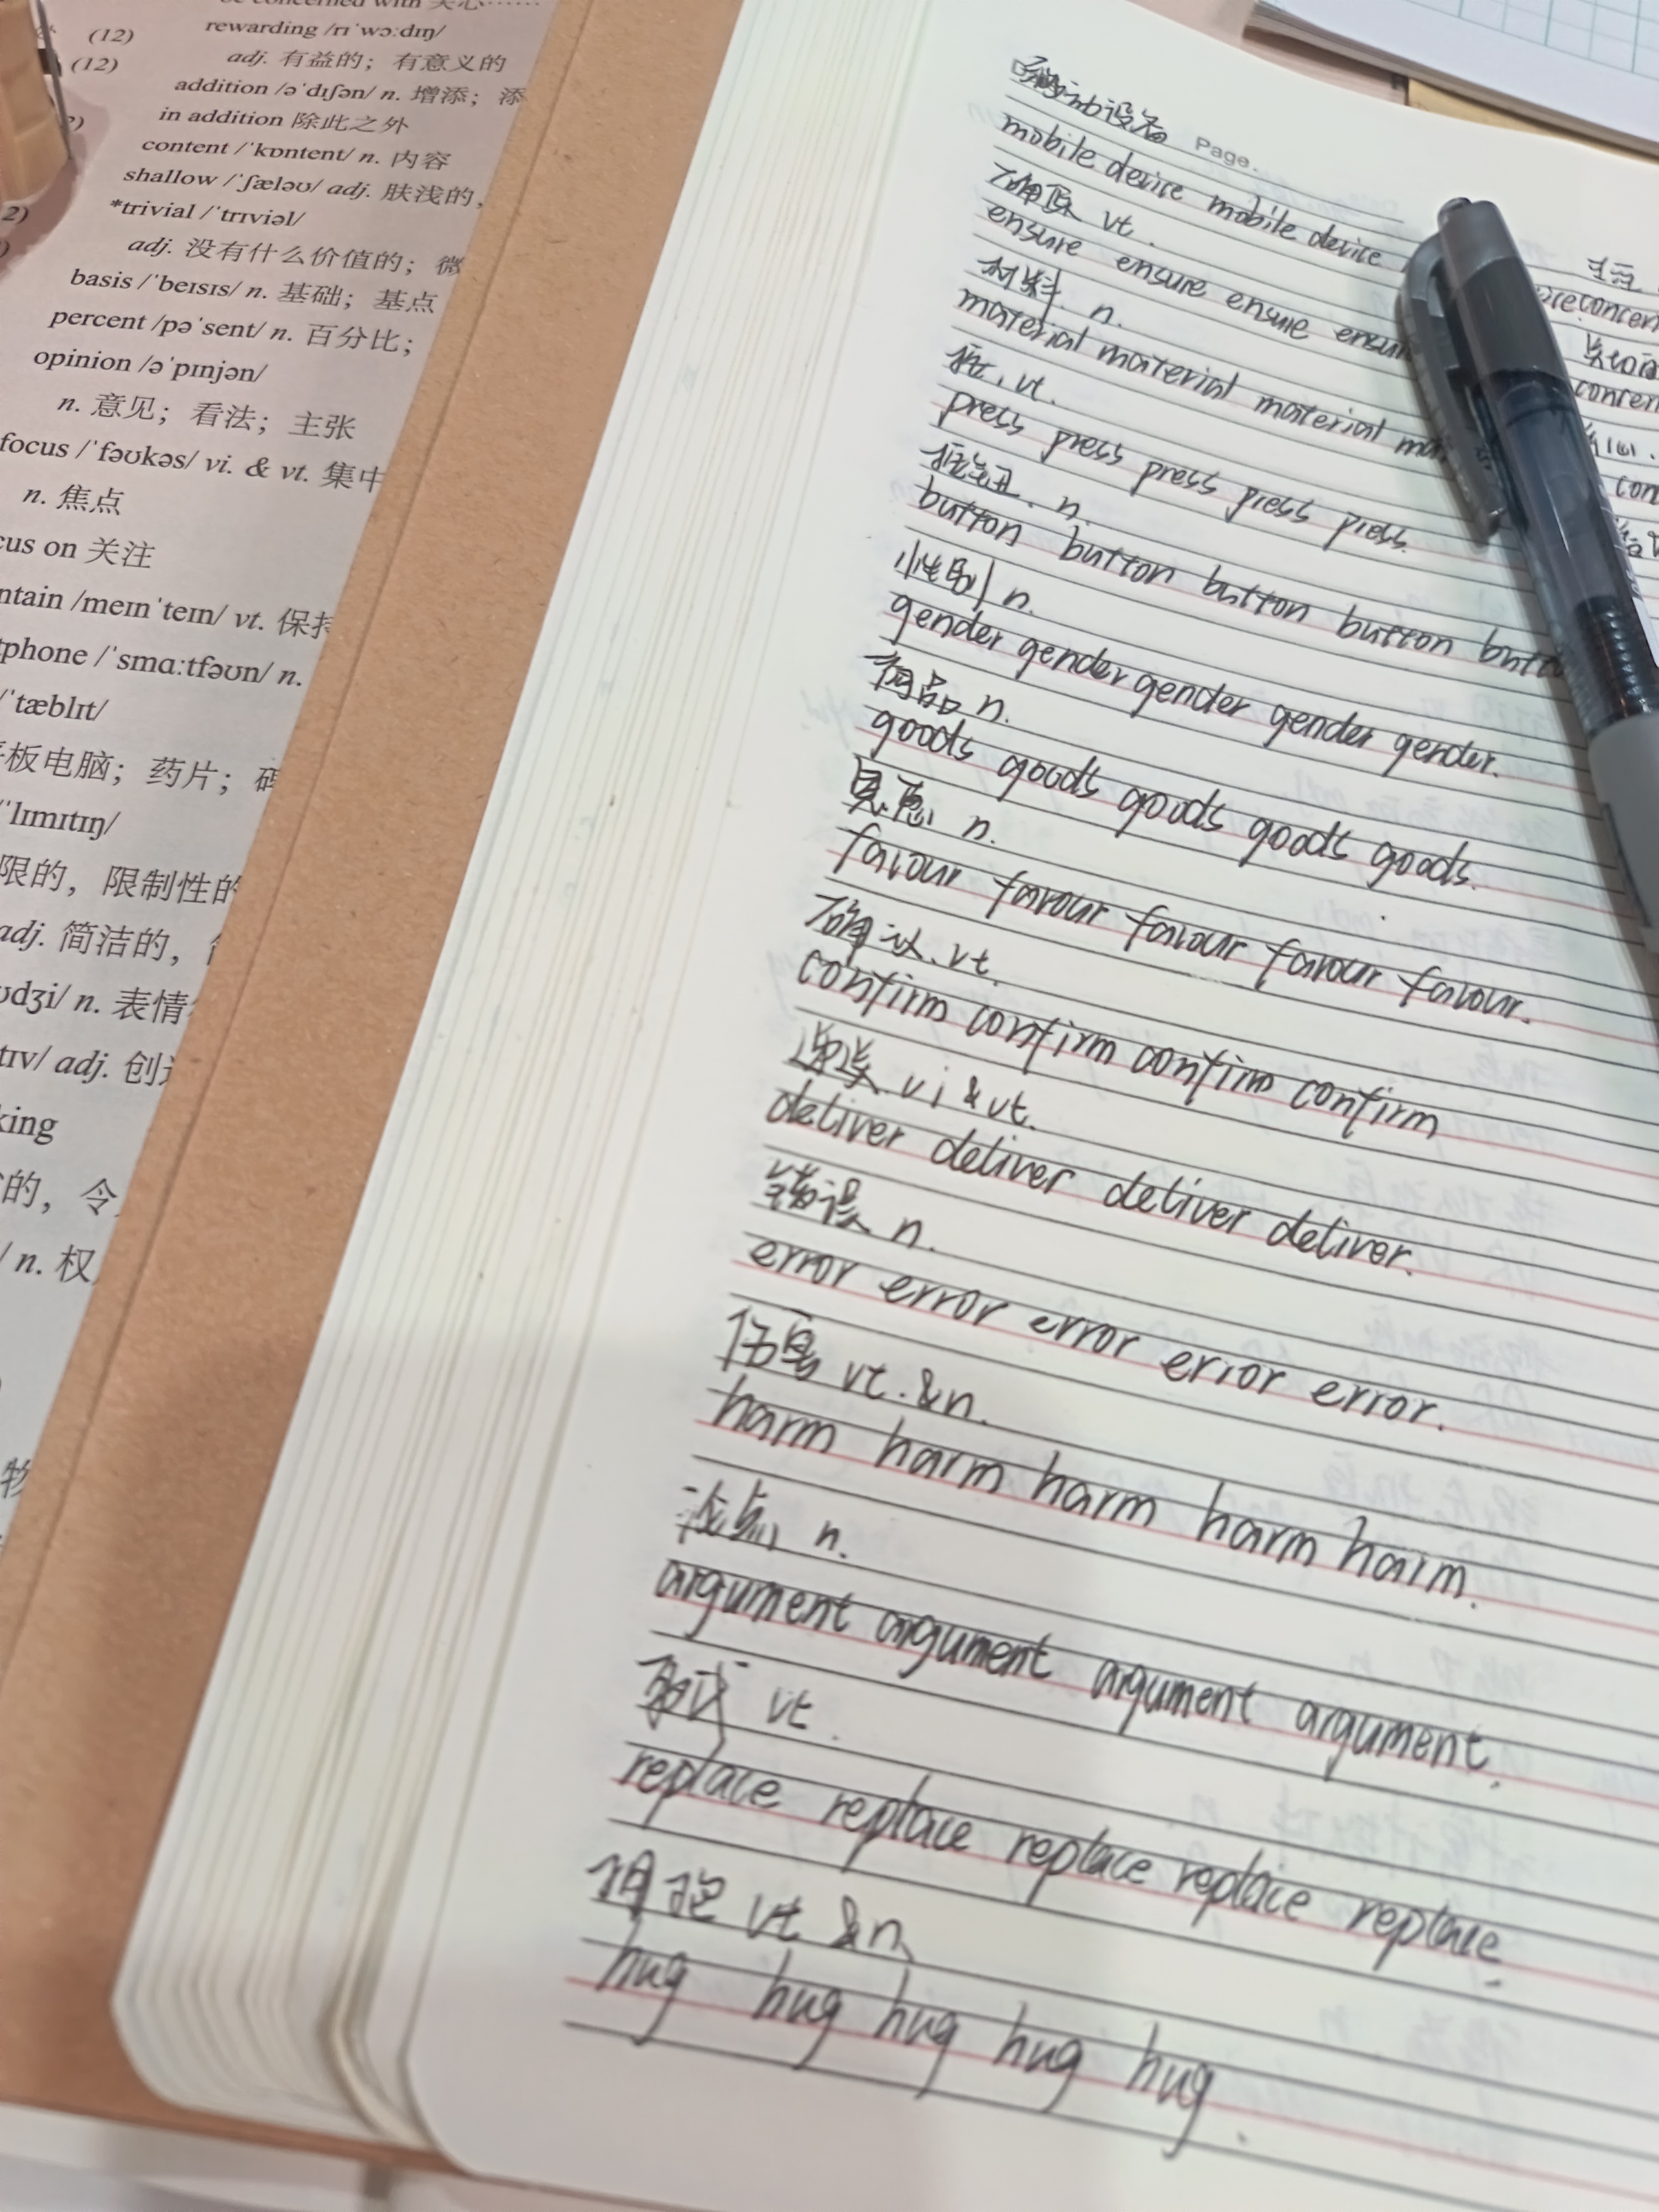 be concerned with 关心……
(12) rewarding /rɪˈwɔːdɪŋ/
(12) adj. 有益的；有意义的
addition /əˈdɪʃən/ n. 增添；添
in addition 除此之外
content /ˈkɒntent/ n. 内容
shallow /ˈʃæləʊ/ adj. 肤浅的,
*trivial /ˈtrɪviəl/
adj. 没有什么价值的；微
basis /ˈbeɪsɪs/ n. 基础；基点
percent /pəˈsent/ n. 百分比；
opinion /əˈpɪnjən/
n. 意见；看法；主张
focus /ˈfəʊkəs/ vi. & vt. 集中
n. 焦点
cus on 关注
ntain /meɪnˈteɪn/ vt. 保持
tphone /ˈsmɑːtfəʊn/ n.
/ˈtæblɪt/
板电脑；药片；
/ˈlɪmɪtɪŋ/
限的，限制性的
adj. 简洁的，
ʊdʒi/ n. 表情
tɪv/ adj. 创
king
的，令
/ n. 权
物
Page.
移动设备
mobile device mobile device
确保 vt.
ensure ensure ensure ensur
材料. n.
material material material ma
按. vt.
press press press press press.
按钮. n.
button button button button butto
性别 n.
gender gender gender gender gender.
商品 n.
goods goods goods goods goods.
恩惠 n.
favour favour favour favour favour.
确认. vt.
confirm confirm confirm confirm
递送 vi & vt.
deliver deliver deliver deliver.
错误 n.
error error error error error.
伤害 vt. & n.
harm harm harm harm harm.
论点 n.
argument argument argument argument.
取代 vt.
replace replace replace replace replace
拥抱 vt & n.
hug hug hug hug hug.